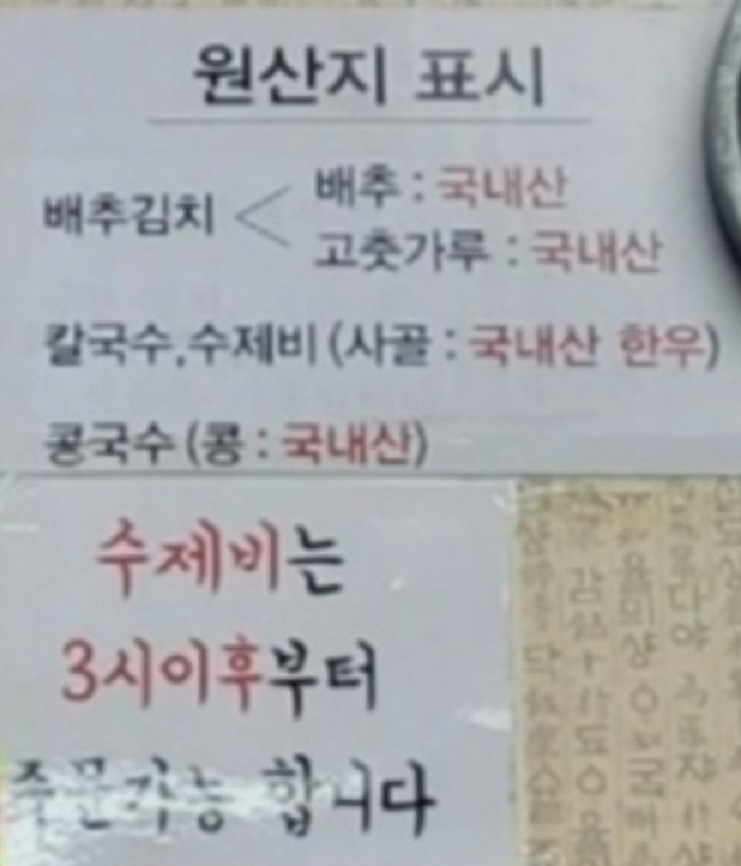 원산지 표시
배추김치 < 배추 : 국내산
고춧가루 : 국내산
칼국수,수제비 (사골 : 국내산 한우)
콩국수 (콩 : 국내산)
수제비는
3시이후부터
주문가능 합니다